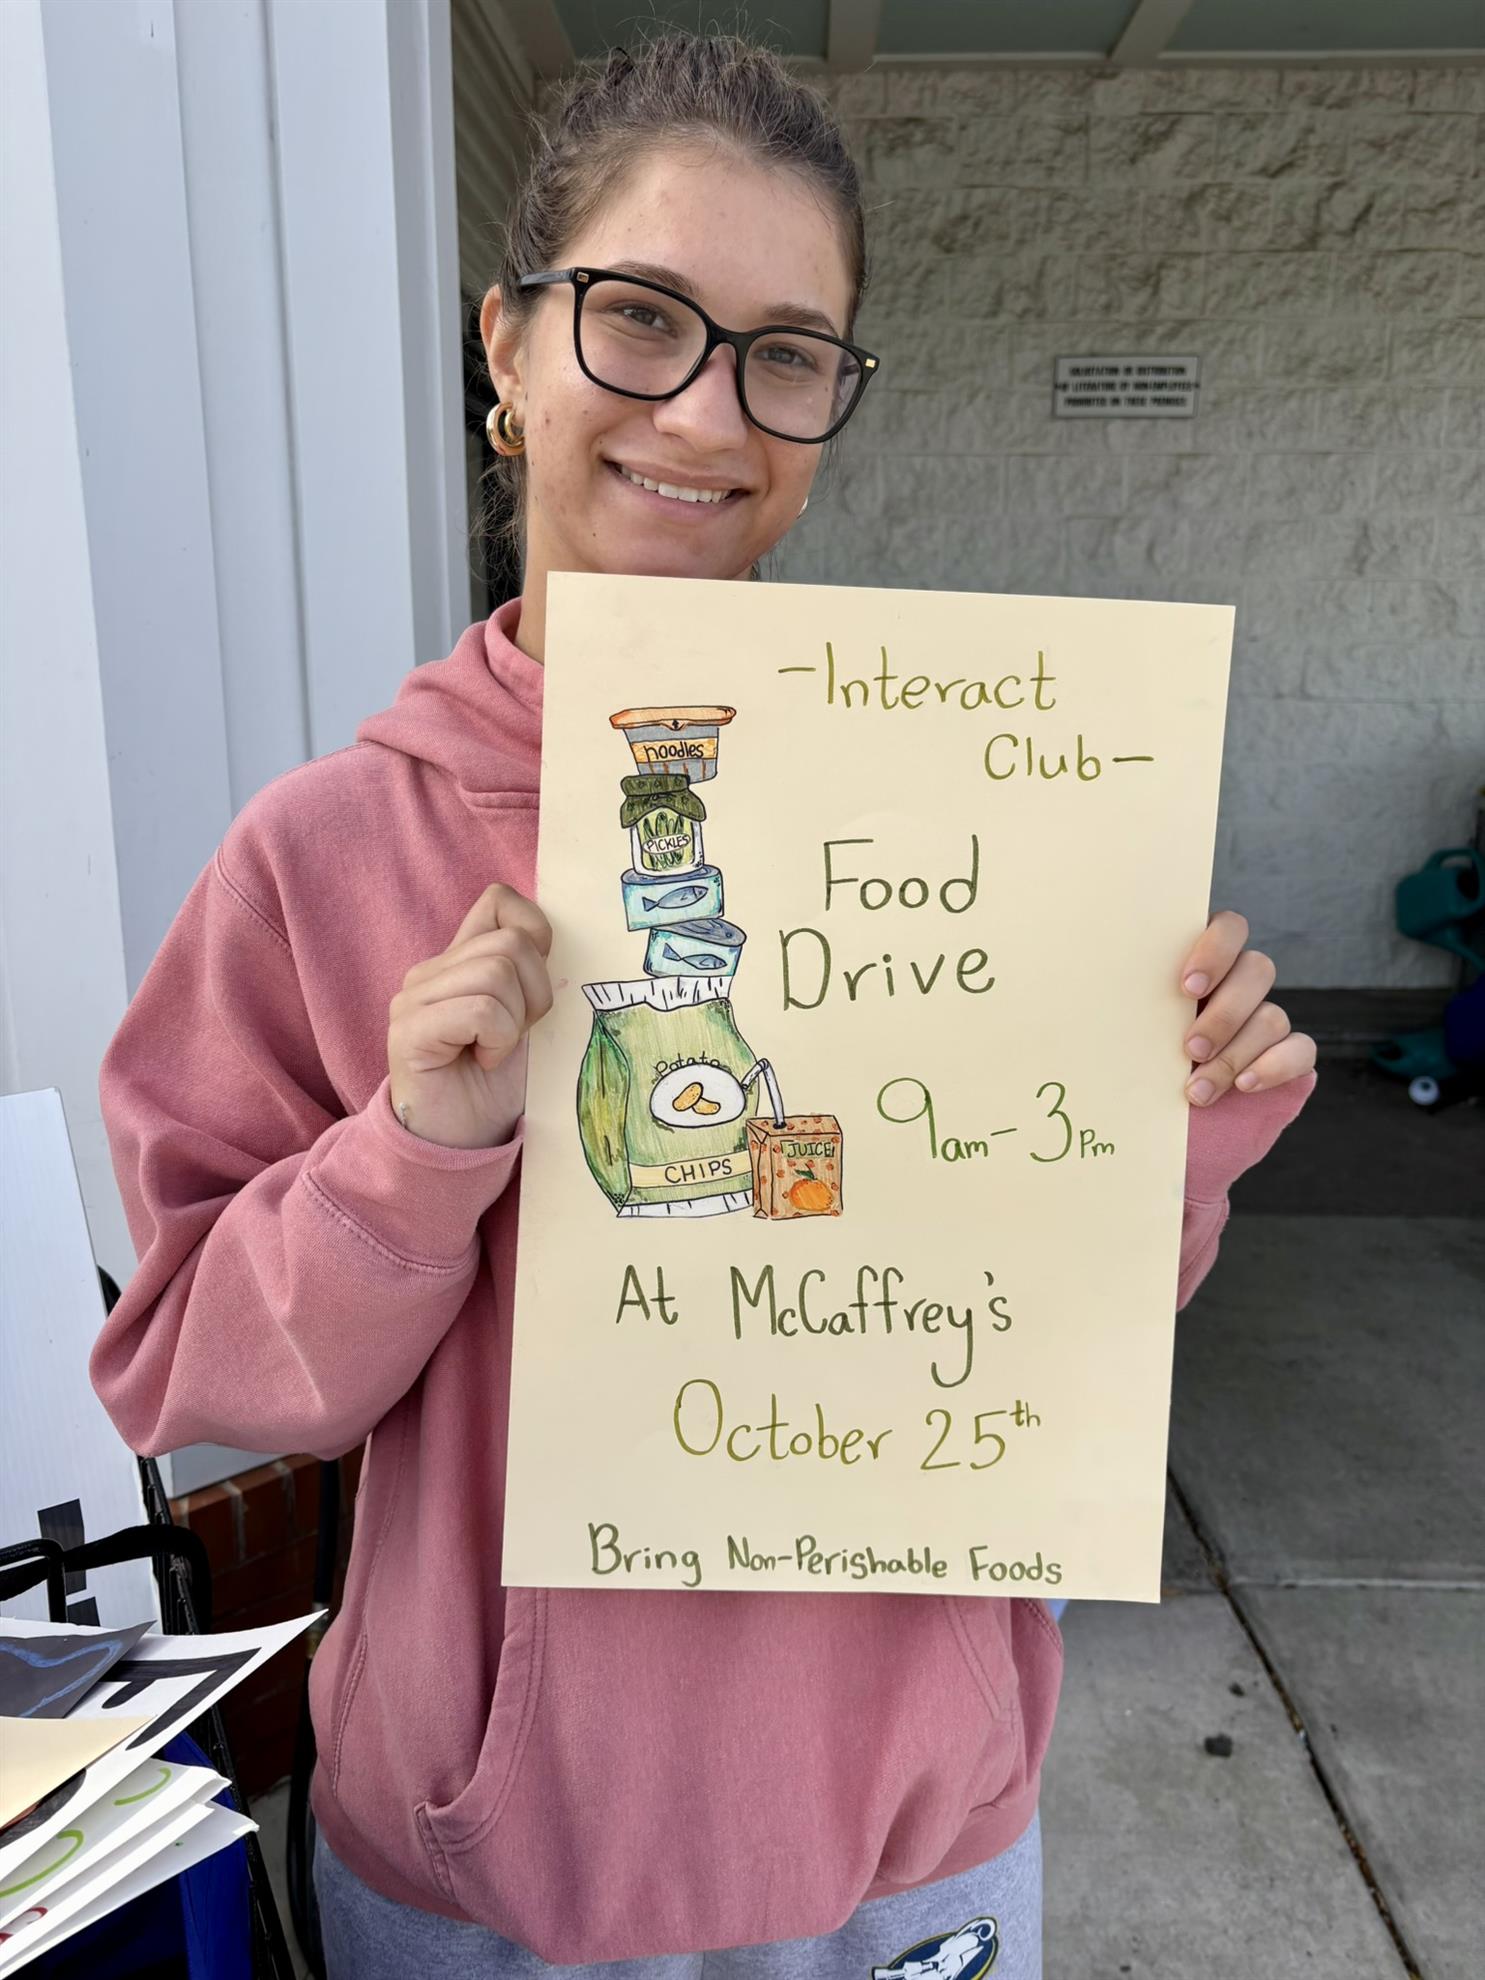 SOLICITATION OR DISTRIBUTION
OF LITERATURE BY NON-EMPLOYEES
PROHIBITED ON THESE PREMISES
-Interact
Club-
noodles
PICKLES
Food
Drive
Potato
CHIPS
JUICE
9am-3Pm
At McCaffrey's
October 25th
Bring Non-Perishable Foods